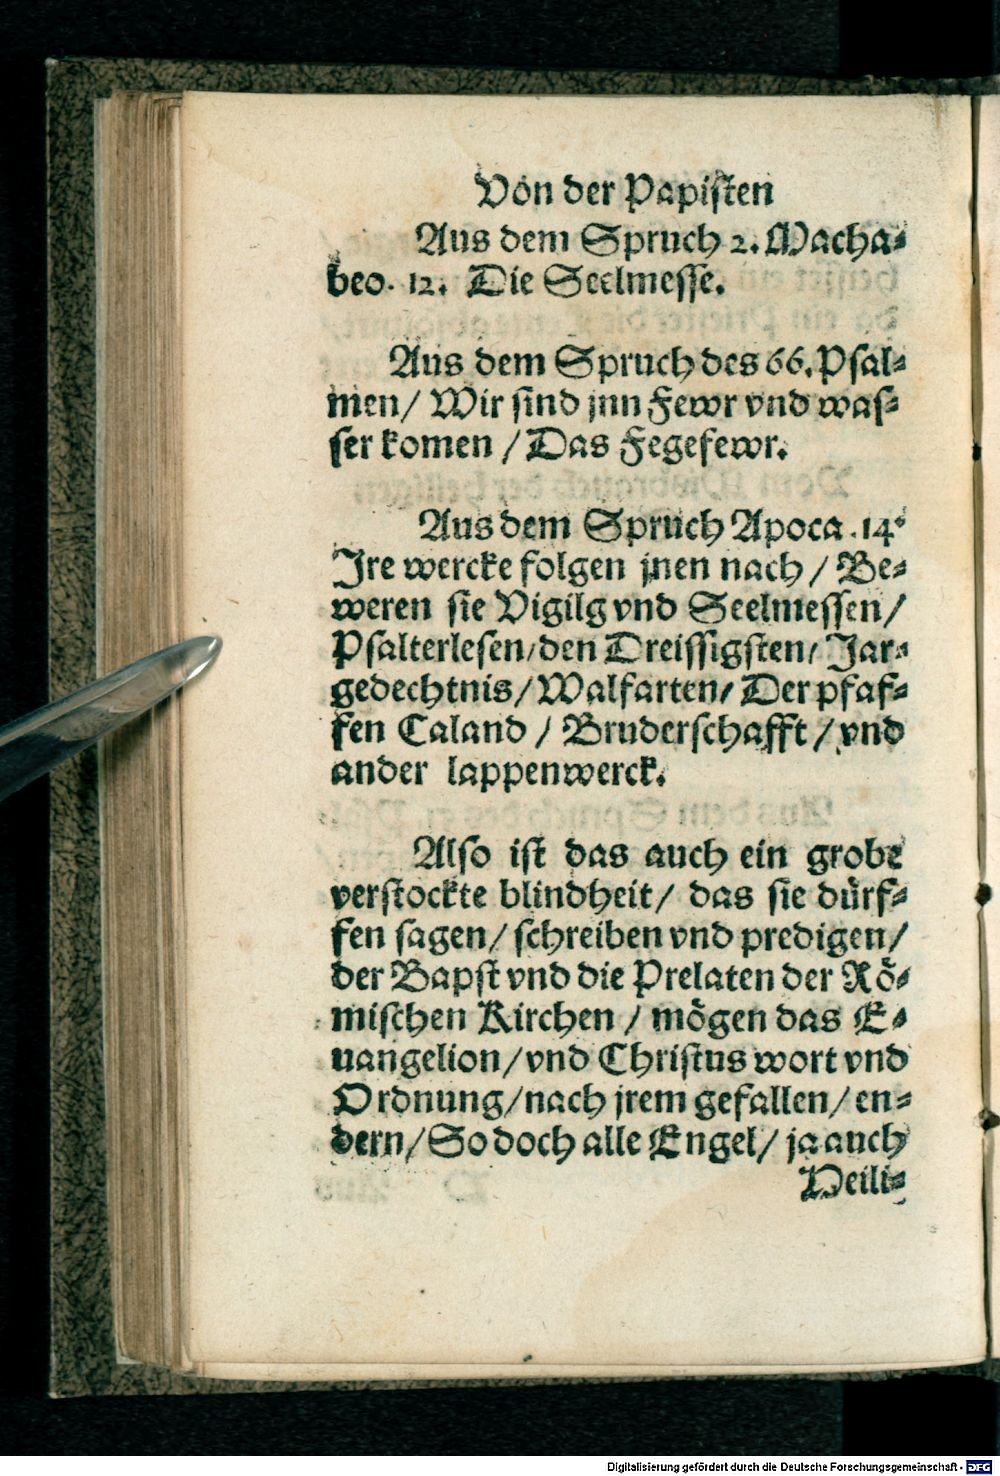 Von der Papisten
Aus dem Spruch 2. Macha⸗
beo. 12. Die Seelmesse.
Aus dem Spruch des 66. Psal⸗
men/ Wir sind jnn Fewr vnd was⸗
ser komen / Das Fegefewr.
Aus dem Spruch Apoca .14.
Jre wercke folgen jnen nach / Be⸗
weren sie Vigilg vnd Seelmessen/
Psalterlesen/den Dreissigsten/ Jar⸗
gedechtnis/ Walfarten/ Der pfaf⸗
fen Caland / Bruderschafft / vnd
ander lappenwerck.
Also ist das auch ein grobe
verstockte blindheit/ das sie dürf⸗
fen sagen/ schreiben vnd predigen/
der Bapst vnd die Prelaten der Rö⸗
mischen Kirchen / mögen das E⸗
uangelion/ vnd Christus wort vnd
Ordnung/nach jrem gefallen/ en⸗
dern/ So doch alle Engel/ ja auch
Heili⸗
Digitalisierung gefördert durch die Deutsche Forschungsgemeinschaft - DFG